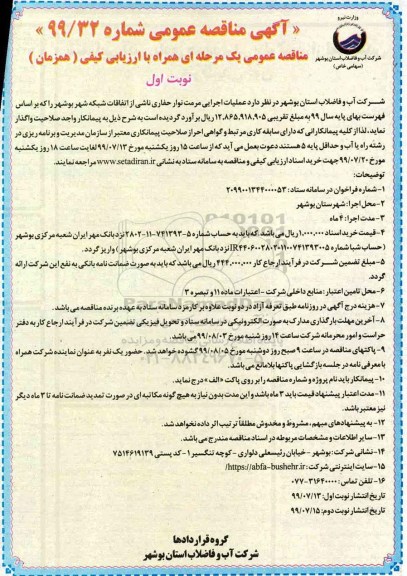 وزارت نیرو
شرکت آب و فاضلاب استان بوشهر
(سهامی خاص)
« آگهی مناقصه عمومی شماره ۹۹/۳۲ »
مناقصه عمومی یک مرحله ای همراه با ارزیابی کیفی ( همزمان )
نوبت اول
شرکت آب و فاضلاب استان بوشهر در نظر دارد عملیات اجرایی مرمت نوار حفاری ناشی از اتفاقات شبکه شهر بوشهر را که بر اساس
فهرست بهای پایه سال ۹۹ به مبلغ تقریبی ۱۲،۸۶۵،۹۱۸،۹۰۵ ریال برآورد گردیده است به شرح ذیل به پیمانکار واجد صلاحیت واگذار
نماید. لذا از کلیه پیمانکارانی که دارای سابقه کاری مرتبط و گواهی احراز صلاحیت پیمانکاری معتبر از سازمان مدیریت و برنامه ریزی در
رشته راه یا آب و حداقل پایه ۵ هستند دعوت بعمل می آید که از ساعت ۱۵ روز یکشنبه مورخ ۹۹/۰۷/۱۳ لغایت ساعت ۱۸ روز یکشنبه
مورخ ۹۹/۰۷/۲۰ جهت خرید اسناد ارزیابی کیفی و مناقصه به سامانه ستاد به نشانی www.setadiran.ir مراجعه نمایند.
توضیحات:
۱- شماره فراخوان در سامانه ستاد: ۲۰۹۹۰۰۱۳۴۴۰۰۰۰۵۳
۲- محل اجرا: شهرستان بوشهر
۳- مدت اجرا: ۴ ماه
۴- قیمت خرید اسناد ۱،۰۰۰،۰۰۰ ریال می باشد که باید به حساب شماره ۵-۷۴۱۳۹۳-۱۱-۲۸۰۲ نزد بانک مهر ایران شعبه مرکزی بوشهر
( حساب شبا شماره نزد بانک مهر ایران شعبه مرکزی بوشهر ) واریز گردد.
۵- مبلغ تضمین شرکت در فرآیند ارجاع کار ۶۴۴،۰۰۰،۰۰۰ ریال می باشد که باید به صورت ضمانت نامه بانکی به نفع این شرکت ارائه
گردد.
۶- محل تامین اعتبار: منابع داخلی شرکت - اعتبارات ماده ۱۱ و تبصره ۳
۷- هزینه درج آگهی در روزنامه طبق تعرفه آزاد در دو نوبت علاوه بر کارمزد سامانه ستاد به عهده برنده مناقصه می باشد.
۸- آخرین مهلت بارگذاری مدارک به صورت الکترونیکی در سامانه ستاد و تحویل فیزیکی تضمین شرکت در فرآیند ارجاع کار به دفتر
حراست و امور محرمانه شرکت ساعت ۱۴ روز شنبه مورخ ۹۹/۰۸/۰۳ می باشد.
۹- پاکتهای مناقصه در ساعت ۹ صبح روز دوشنبه مورخ ۹۹/۰۸/۰۵ گشوده خواهد شد. حضور یک نفر به عنوان نماینده شرکت همراه
با معرفی نامه در جلسه بازگشایی پاکتها بلامانع می باشد.
۱۰- پیمانکار باید نام پروژه و شماره مناقصه را بر روی پاکت «الف» درج نماید.
۱۱- مدت اعتبار پیشنهاد قیمت باید ۳ ماه باشد و این مدت بدون نیاز به هیچ گونه مکاتبه ای در صورت تمدید ضمانت نامه تا ۳ ماه دیگر
نیز معتبر باشد.
۱۲- به پیشنهادهای مبهم، مشروط و مخدوش مطلقاً ترتیب اثر داده نخواهد شد.
۱۳- سایر اطلاعات و مشخصات مربوطه در اسناد مناقصه مندرج می باشد.
۱۴- نشانی شرکت: بوشهر - خیابان رئیسعلی دلواری - کوچه تنگسیر ۱- کد پستی ۷۵۱۴۶۱۹۱۳۹
۱۵- سایت اینترنتی شرکت: https://abfa-bushehr.ir/
۱۶- تلفن تماس: ۳۱۶۴۰۰۰۰-۰۷۷
تاریخ انتشار نوبت اول: ۹۹/۰۷/۱۳
تاریخ انتشار نوبت دوم: ۹۹/۰۷/۱۵
گروه قراردادها
شرکت آب و فاضلاب استان بوشهر